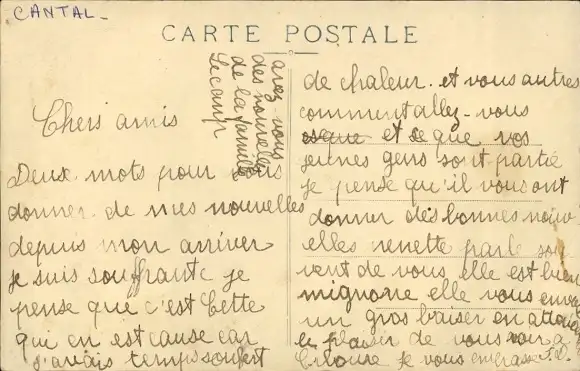 CANTAL-
CARTE POSTALE
avez vous
des nouvelles
de la famille
Lecamp
Chers amis
Deux mots pour vous
donner de mes nouvelles
depuis mon arriver
je suis souffrante je
pense que c'est Cette
qui en est cause car
j'avais temp soufert
de chaleur. et vous autres
comment allez-vous
esque et se que vos
jeunes gens sont partie
je pense qu'il vous ont
donner des bonnes nouv
elles nenette parle sou
vent de vous, elle est bien
mignone elle vous envoie
un gros baiser en
le plaisir de vous voir a
je vous embrasse